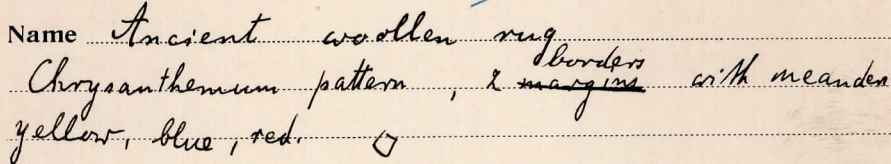 Name Ancient woollen rug
Chrysanthemum pattern, 2 margins borders with meander
yellow, blue, red.